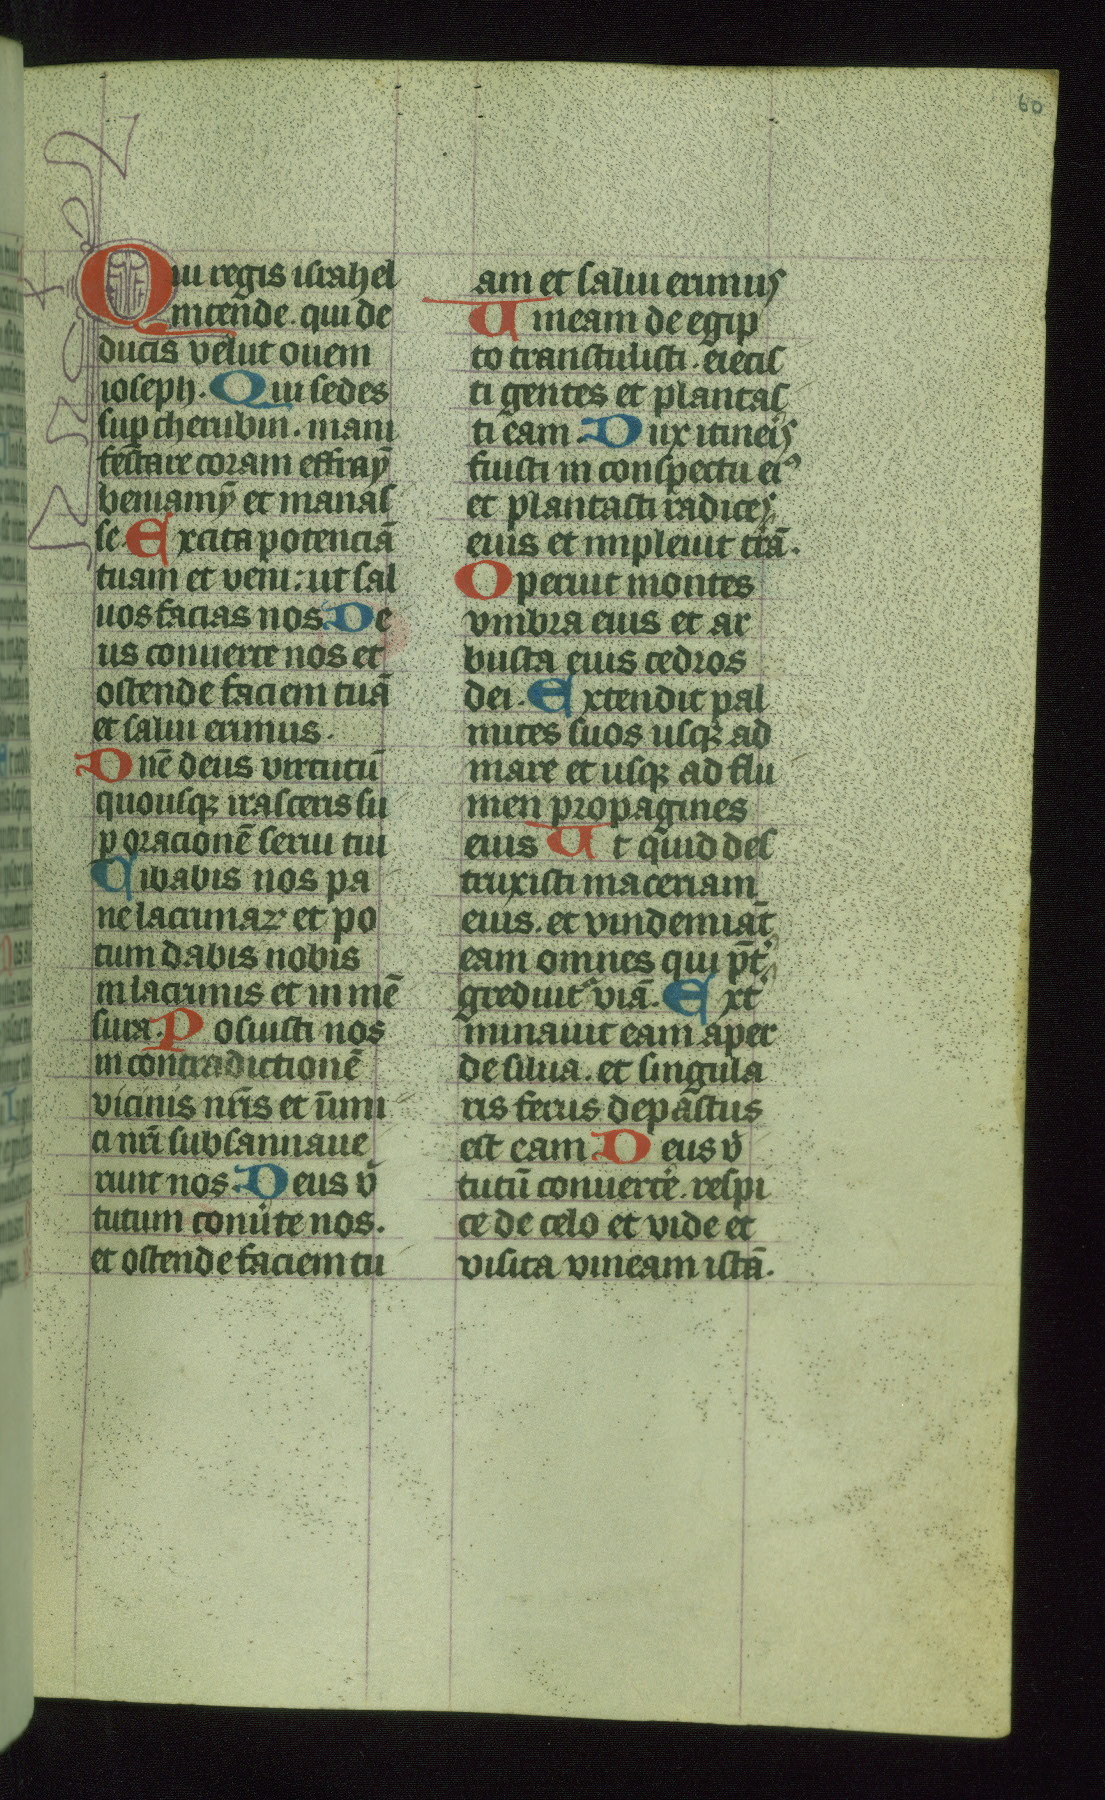 60
Qui regis israhel
intende. qui de
ducis velut ouem
ioseph. Qui sedes
sup cherubin. mani
festare coram effraȳ
beniamȳ et manas
se. Excita potenciā
tuam et veni: ut sal
uos facias nos. De
us conuerte nos et
ostende faciem tuā
et salui erimus.
Dnē deus virtutū
quousqꝫ irasceris su
p oracionē serui tui
Cibabis nos pa
ne lacrimaꝝ et po
tum dabis nobis
in lacrimis et in mē
sura. Posuisti nos
in contradictionē
vicinis nr̄is et īimi
ci nr̄i subsannaue
runt nos. Deus v̾
tutum conu̾te nos.
et ostende faciem tu
am et salui erimus
Uineam de egip
to transtulisti. eiecis
ti gentes et plantas
ti eam. Dux itineis
fuisti in conspectu eiꝰ
et plantasti radices
eius et impleuit trā.
Operuit montes
vmbra eius et ar
busta eius cedros
dei. Extendit pal
mites suos usqꝫ ad
mare et usqꝫ ad flu
men propagines
eius Ut quid des
truxisti maceriam
eius. et vindemiāt
eam omnes qui p̄t
grediūt᷑ viā. Ext̾
minauit eam aper
de silua. et singula
ris ferus depastus
est eam Deus v̾
tutū conuerte. respi
ce de celo et vide et
visita vineam istā.